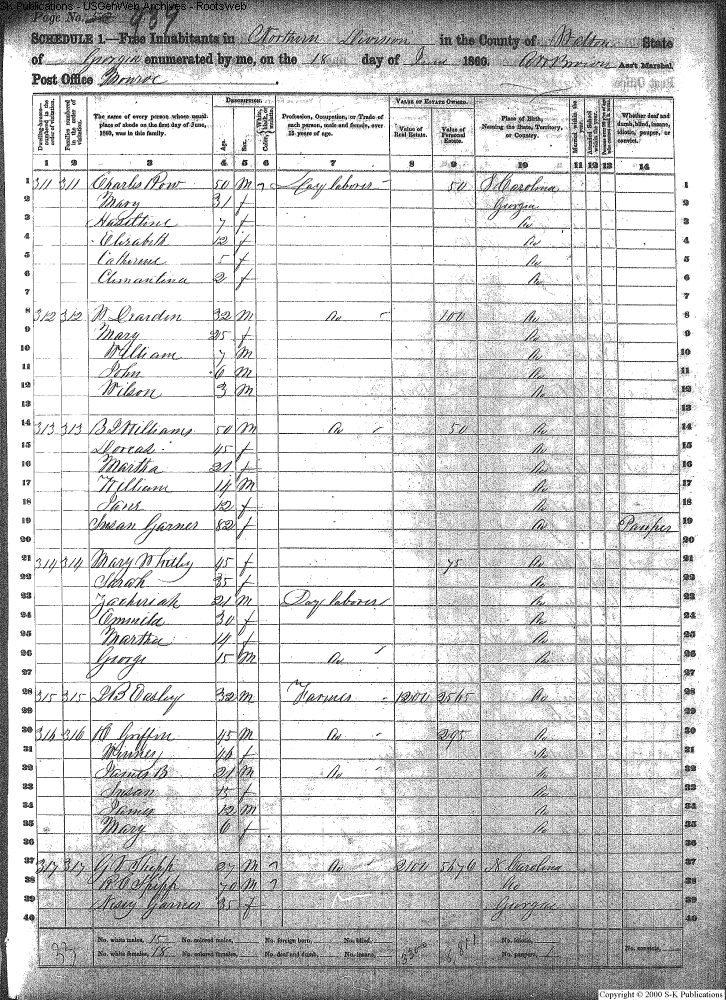 S-K Publications - USGenWeb Archives - Rootsweb
Page No. 
Schedule 1.—Free Inhabitants in Northern Division in the County of Walton State
of Georgia enumerated by me, on the 18 day of June 1860. Ass't Marshal.
Post Office Monroe
Dwelling-houses—numbered in the order of visitation.
Families numbered in the order of visitation.
The name of every person whose usual place of abode on the first day of June, 1860, was in this family.
Description.
Age.
Sex.
Color, White, black, or mulatto.
Profession, Occupation, or Trade of each person, male and female, over 15 years of age.
Value of Estate Owned.
Value of Real Estate.
Value of Personal Estate.
Place of Birth, Naming the State, Territory, or Country.
Married within the year.
Attended School within the year.
Whether deaf and dumb, blind, insane, idiotic, pauper, or convict.
1 2 3 4 5 6 7 8 9 10 11 12 13 14
1 311 311 Charles Row 50 m Day laborer 50 S Carolina 1
2 Mary 31 f Georgia 2
3 7 f Do 3
4 Elizabeth 12 f Do 4
5 Catherine 5 f Do 5
6 Clemantina 2 f Do 6
7 7
8 312 312 W Dearden 32 m Do 100 Do 8
9 Mary 25 f Do 9
10 William 7 m Do 10
11 John 6 m Do 11
12 Wilson 3 m Do 12
13 13
14 313 313 Williams 50 m Do 50 Do 14
15 Dorcas 45 f Do 15
16 Martha 21 f Do 16
17 William 14 m Do 17
18 Jane 12 f Do 18
19 Susan Garner 82 f Do Pauper 19
20 20
21 314 314 Mary Whitley 45 f 75 Do 21
22 Sarah 35 f Do 22
23 Zacheriah 21 m Day laborer Do 23
24 Emmila 30 f Do 24
25 Martha 14 f Do 25
26 George 15 m Do Do 26
27 27
28 315 315 Easley 32 m Farmer 1200 2565 Do 28
29 29
30 316 316 Griffin 45 m Do 295 Do 30
31 f Do 31
32 James B 21 m Do Do 32
33 Susan 15 f Do 33
34 James 12 m Do 34
35 Mary 6 f Do 35
36 36
37 317 317 Shipp 27 m Do 2100 5676 N Carolina 37
38 Shipp 70 m Do 38
39 Garner 35 f Georgia 39
40 40
No. white males, 15 No. colored males, No. foreign born, No. blind, No. idiotic,
No. white females, 18 No. colored females, No. deaf and dumb, No. insane, 3300 No. paupers, 1 No. convicts,
Copyright © 2000 S-K Publications